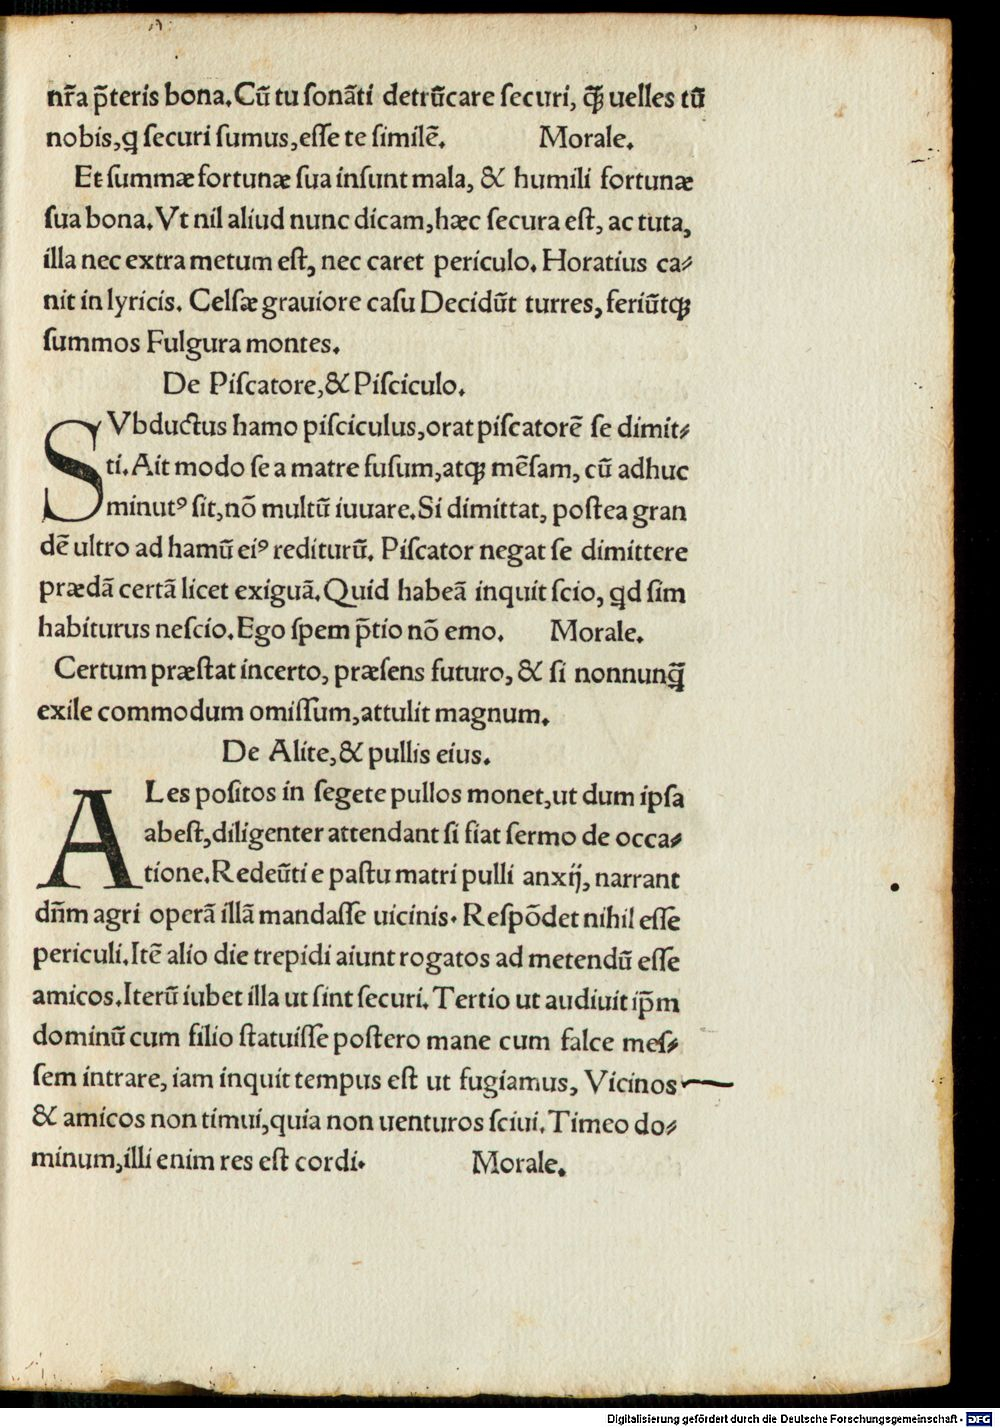 nr̃a p̃teris bona. Cũ tu ſonãti detrũcare ſecuri, q̃ꝫ uelles tũ
nobis, ꝗ ſecuri ſumus, eſſe te ſimilẽ. Morale.
Et ſummæ fortunæ ſua inſunt mala, & humili fortunæ
ſua bona. Vt nil aliud nunc dicam, hæc ſecura eſt, ac tuta,
illa nec extra metum eſt, nec caret periculo. Horatius ca⸗
nit in lyricis. Celſæ grauiore caſu Decidũt turres, feriũtqꝫ
ſummos Fulgura montes.
De Piſcatore, & Piſciculo.
SVbductus hamo piſciculus, orat piſcatorẽ ſe dimit⸗
ti. Ait modo ſe a matre fuſum, atqꝫ mẽſam, cũ adhuc
minutꝰ ſit, nõ multũ iuuare. Si dimittat, poſtea gran
dẽ ultro ad hamũ eiꝰ rediturũ. Piſcator negat ſe dimittere
prædã certã licet exiguã. Quid habeã inquit ſcio, ꝗd ſim
habiturus neſcio. Ego ſpem p̃tio nõ emo. Morale.
Certum præſtat incerto, præſens futuro, & ſi nonnunq̃ꝫ
exile commodum omiſſum, attulit magnum.
De Alite, & pullis eius.
ALes poſitos in ſegete pullos monet, ut dum ipſa
abeſt, diligenter attendant ſi fiat ſermo de occa⸗
tione. Redeũti e paſtu matri pulli anxij, narrant
dñm agri operã illã mandaſſe uicinis. Reſpõdet nihil eſſe
periculi. Itẽ alio die trepidi aiunt rogatos ad metendũ eſſe
amicos. Iterũ iubet illa ut ſint ſecuri. Tertio ut audiuit ip̃m
dominũ cum filio ſtatuiſſe poſtero mane cum falce meſ⸗
ſem intrare, iam inquit tempus eſt ut fugiamus, Vicinos
& amicos non timui, quia non uenturos ſciui. Timeo do⸗
minum, illi enim res eſt cordi. Morale.
Digitalisierung gefördert durch die Deutsche Forschungsgemeinschaft - DFG